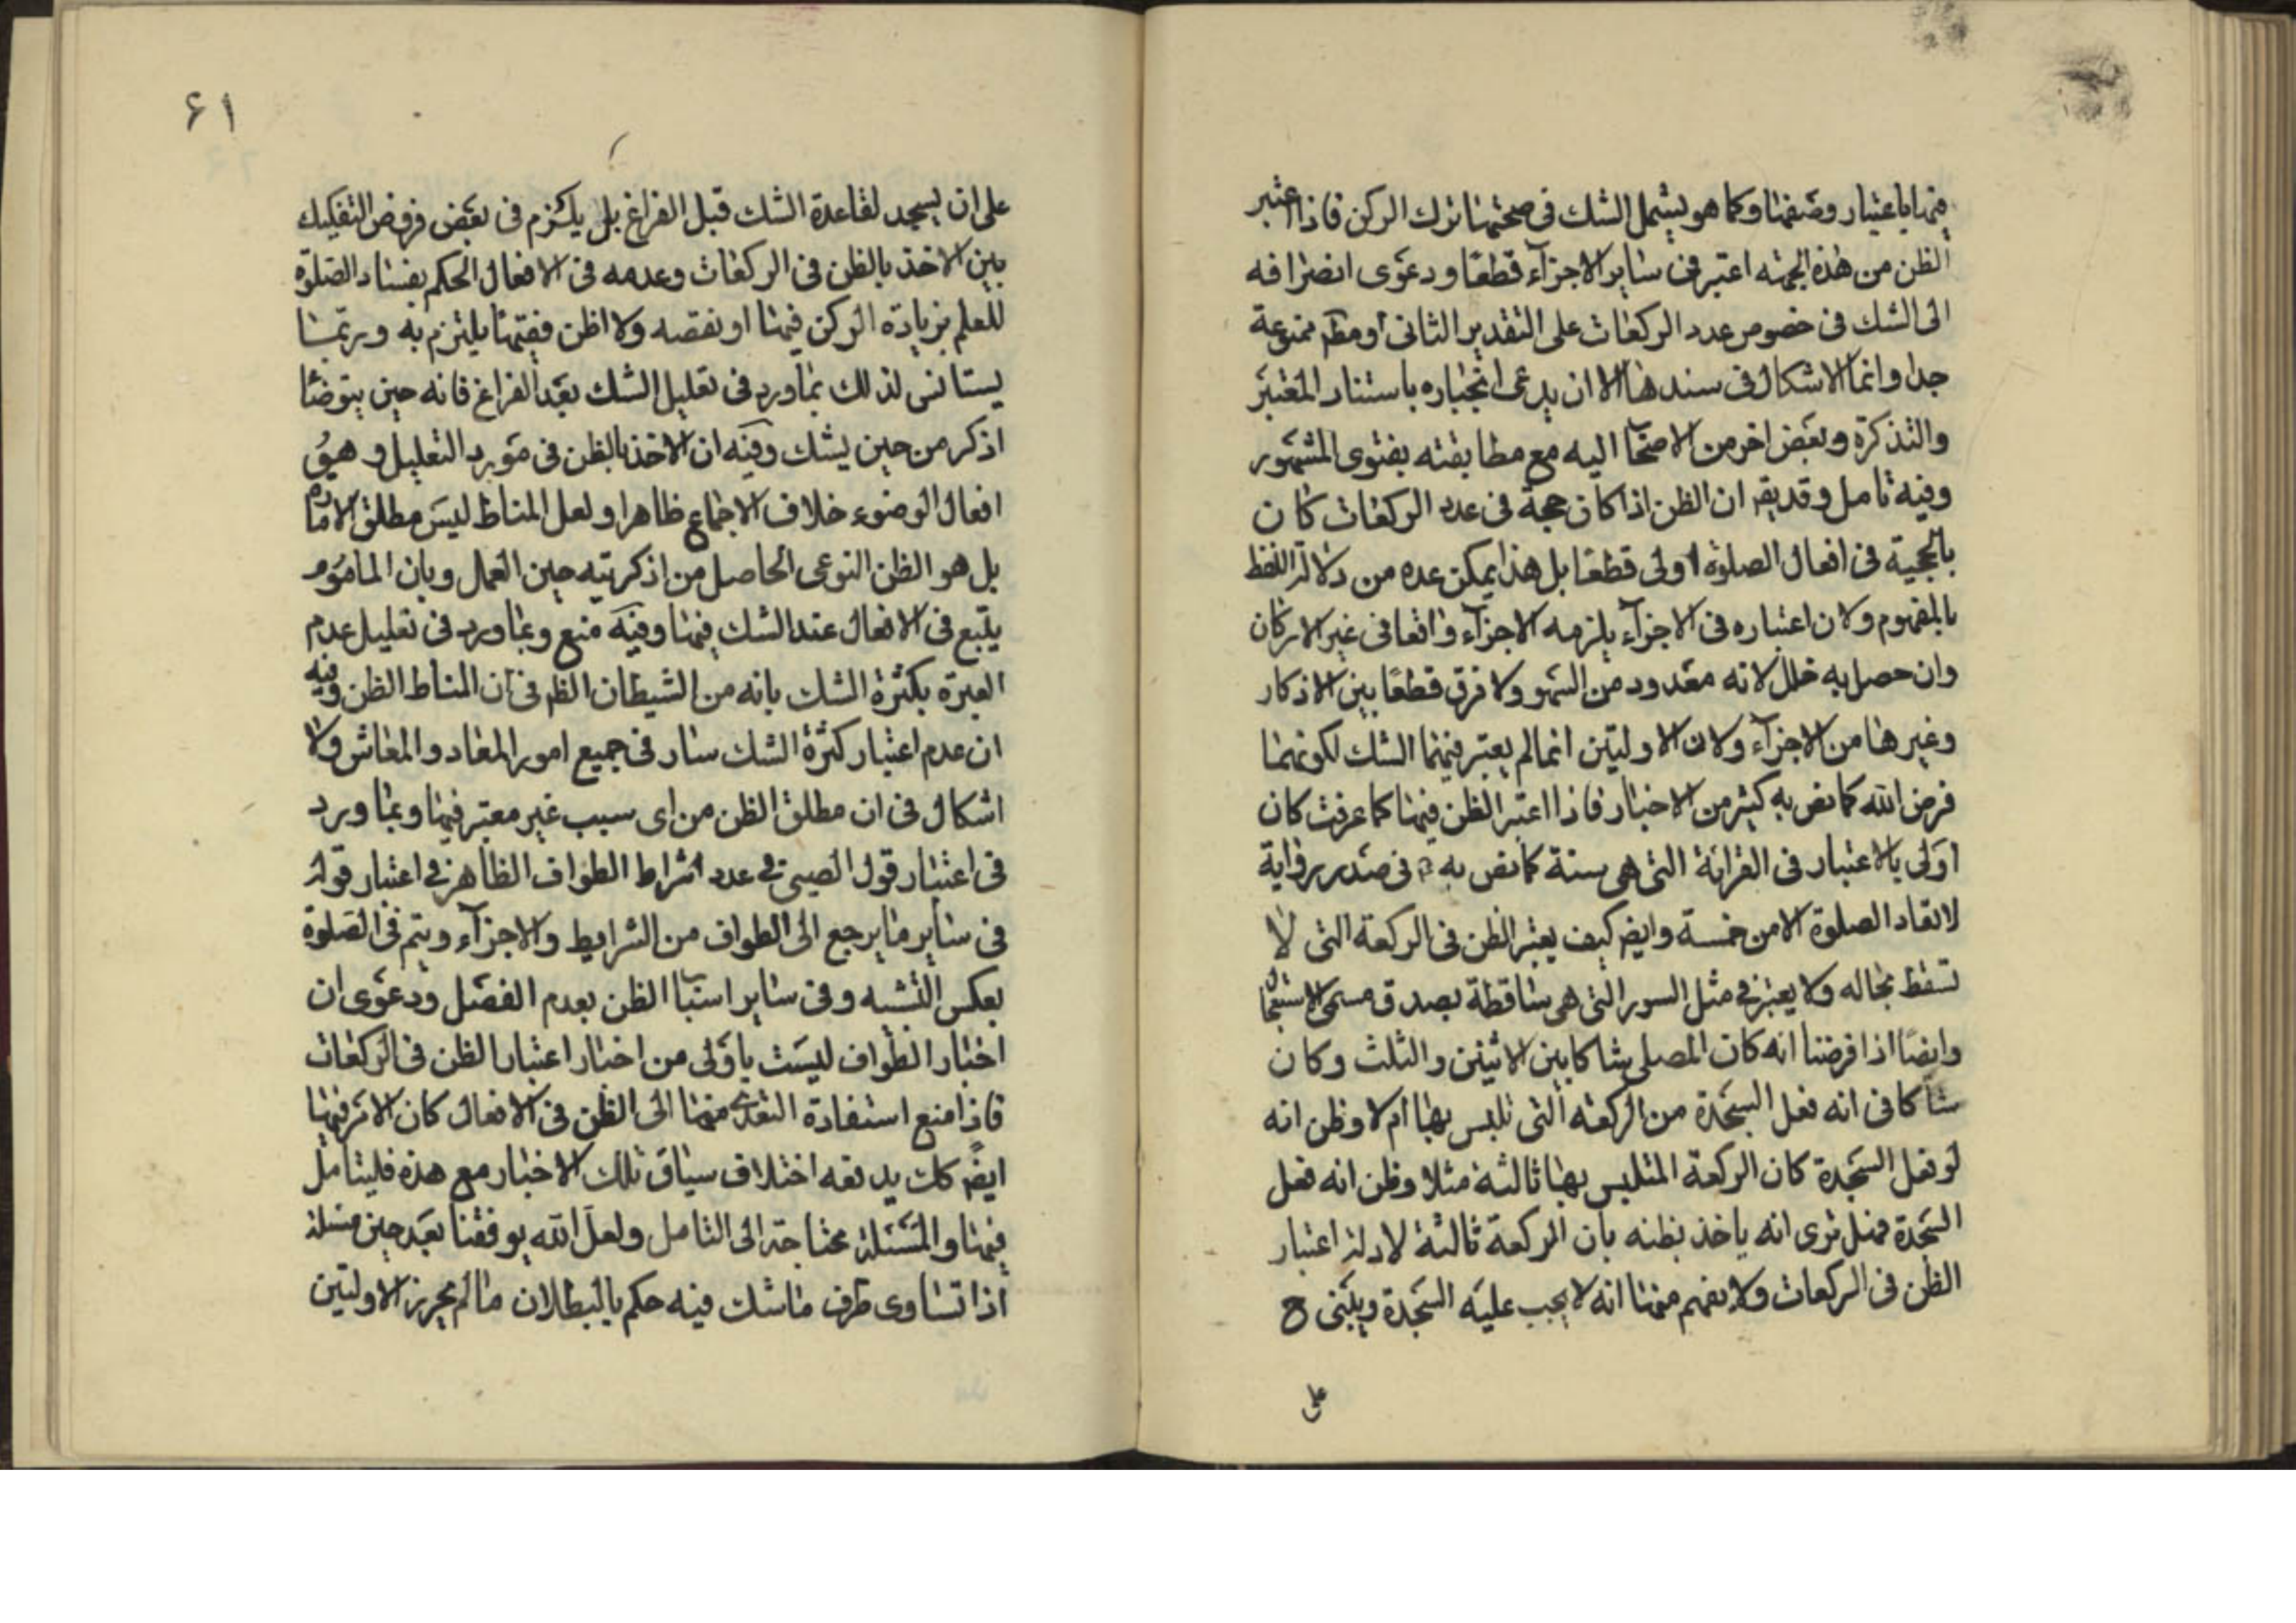 فيها باعتبار وصفها وكما هو يشمل الشك فى صحتها ترك الركن فاذا اعتبر
الظن من هذه الجهة اعتبر فى ساير الاجزاء قطعا ودعوى انصرافه
الى الشك فى خصوص عدد الركعات على التقدير الثانى او مطم ممنوعة
جدا وانما الاشكال فى سندها الا ان يدعى انجباره باستناد المعتبر
والتذكرة وبعض اخر من الاصحا اليه مع مطابقته بفتوى المشهور
وفيه تامل وقد يقه ان الظن اذا كان حجة فى عدد الركعات كان
بالحجية فى افعال الصلوة اولى قطعا بل هذا يمكن عده من دلالة اللفظ
بالمفهوم ولان اعتباره فى الاجزاء يلزمه الاجزاء واقعا فى غير الاركان
وان حصل به خلل لانه معدود من السهو ولا فرق قطعًا بين الاذكار
وغيرها من الاجزاء ولان الاوليتين انما لم يعتبر فيهما الشك لكونهما
فرض الله كما نص به كثير من الاخبار فاذا اعتبر الظن فيهما كما عرفت كان
اولى بالاعتبار فى القرائة التى هى سنة كما نص به فى صدر رواية
لا تعاد الصلوة الا من خمسة وايضه كيف يعتبر الظن فى الركعة التى لا
تسقط بحاله ولا يعتبر فى مثل السور التى هى ساقطة بصدق مسمى الاستعجا
وايضًا اذا فرضنا انه كان المصلى شاكا بين الاثنين والثلث وكان
شاكا فى انه فعل السجدة من الركعة التى تلبس بها ام لا وظن انه
لو فعل السجدة كان الركعة المتلبس بها ثالثة مثلا وظن انه فعل
السجدة فهل ترى انه ياخذ بظنه بان الركعة ثالثة لادلة اعتبار
الظن فى الركعات ولا يفهم منها انه لا يجب عليه السجدة ويبنى ح
على
۶۱
على ان يسجد لقاعدة الشك قبل الفراغ بل يلتزم فى بعض فروض التفكيك
بين الاخذ بالظن فى الركعات وعدمه فى الافعال الحكم بفساد الصلوة
للعلم بزيادة الركن فيها او نقصه ولا اظن فقيها يلتزم به وربما
يستانس لذلك بما ورد فى تعليل الشك بعد الفراغ فانه حين يتوضا
اذكر من حين يشك وفيه ان الاخذ بالظن فى مورد التعليل وهو
افعال الوضوء خلاف الاجماع ظاهرا ولعل المناط ليس مطلق الامارة
بل هو الظن النوعى الحاصل من اذكريته حين العمل وبان الماموم
يتبع فى الافعال عند الشك فيها وفيه منع وبما ورد فى تعليل عدم
العبرة بكثرة الشك بانه من الشيطان الظه فى ان المناط الظن وفيه
ان عدم اعتبار كثرة الشك سار فى جميع امور المعاد والمعاش ولا
اشكال فى ان مطلق الظن من اى سبب غير معتبر فيها وبما ورد
فى اعتبار قول الصبى فى عدد اشراط الطواف الظاهر فى اعتبار قوله
فى ساير ما يرجع الى الطواف من الشرايط والاجزاء ويتم فى الصلوة
بعكس التشبه وفى ساير اسبا الظن بعدم الفصل ودعوى ان
اخبار الطواف ليست باولى من اخبار اعتبار الظن فى الركعات
فاذا منع استفادة التعدى منها الى الظن فى الافعال كان الامر فيها
ايضه كك يدفعه اختلاف سياق تلك الاخبار مع هذه فليتامل
فيها والمسئلة محتاجة الى التامل ولعل الله يوفقنا بعد حين مسئلة
اذا تساوى طرف ما شك فيه حكم بالبطلان ما لم يحرز الاوليتين